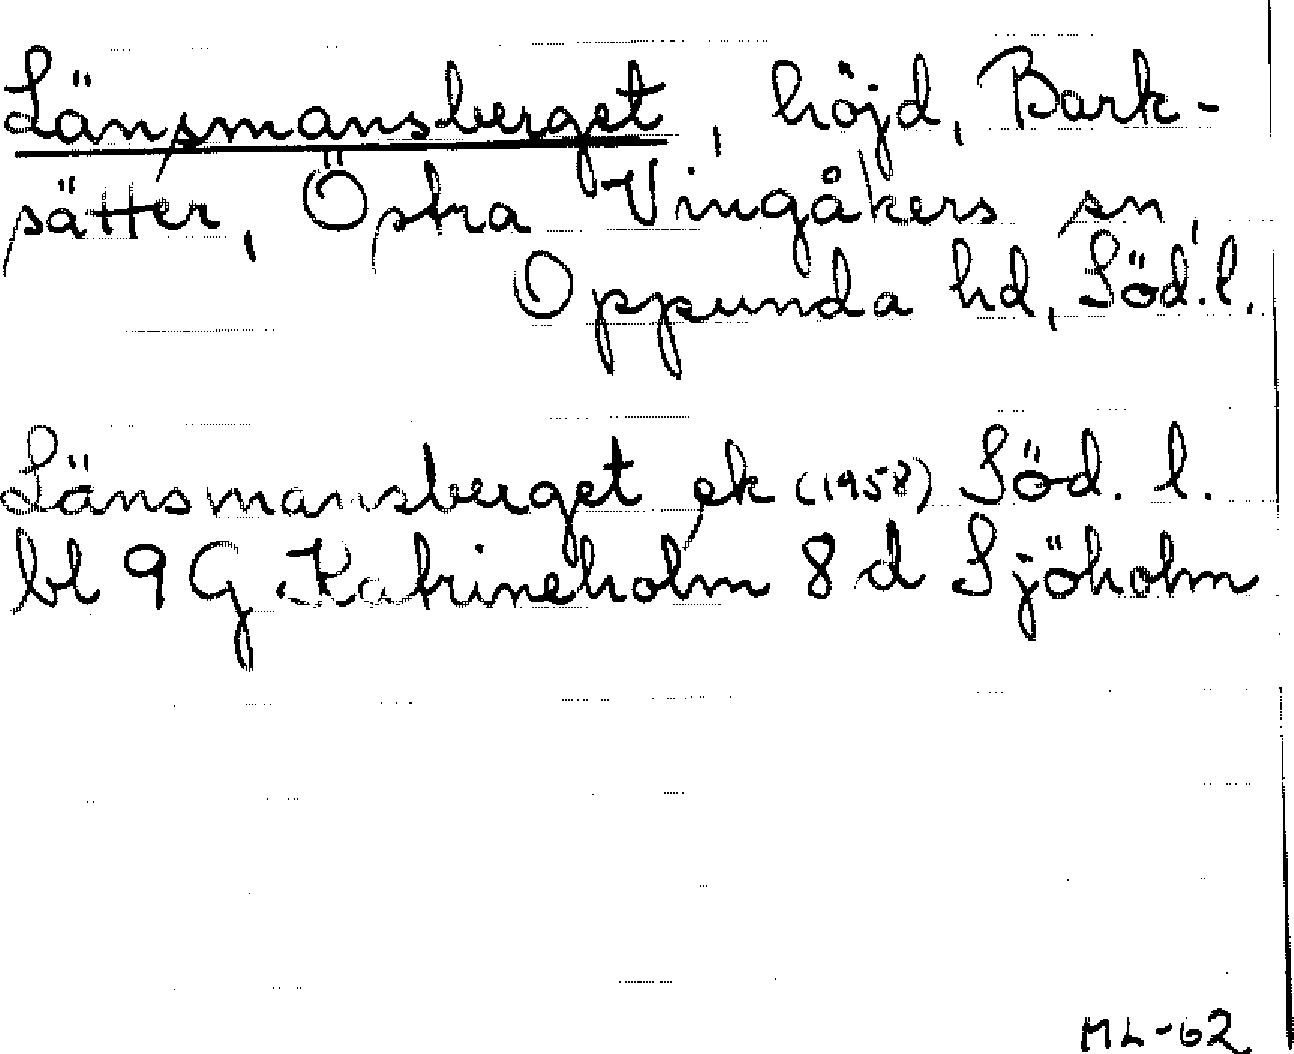 Länsmansberget, höjd, Bark-
sätter, Östra Vingåkers sn,
Oppunda hd, Söd. l.
Länsmansberget ek (1958) Söd. l.
bl 9 G Katrineholm 8 d Sjöholm
ML-62